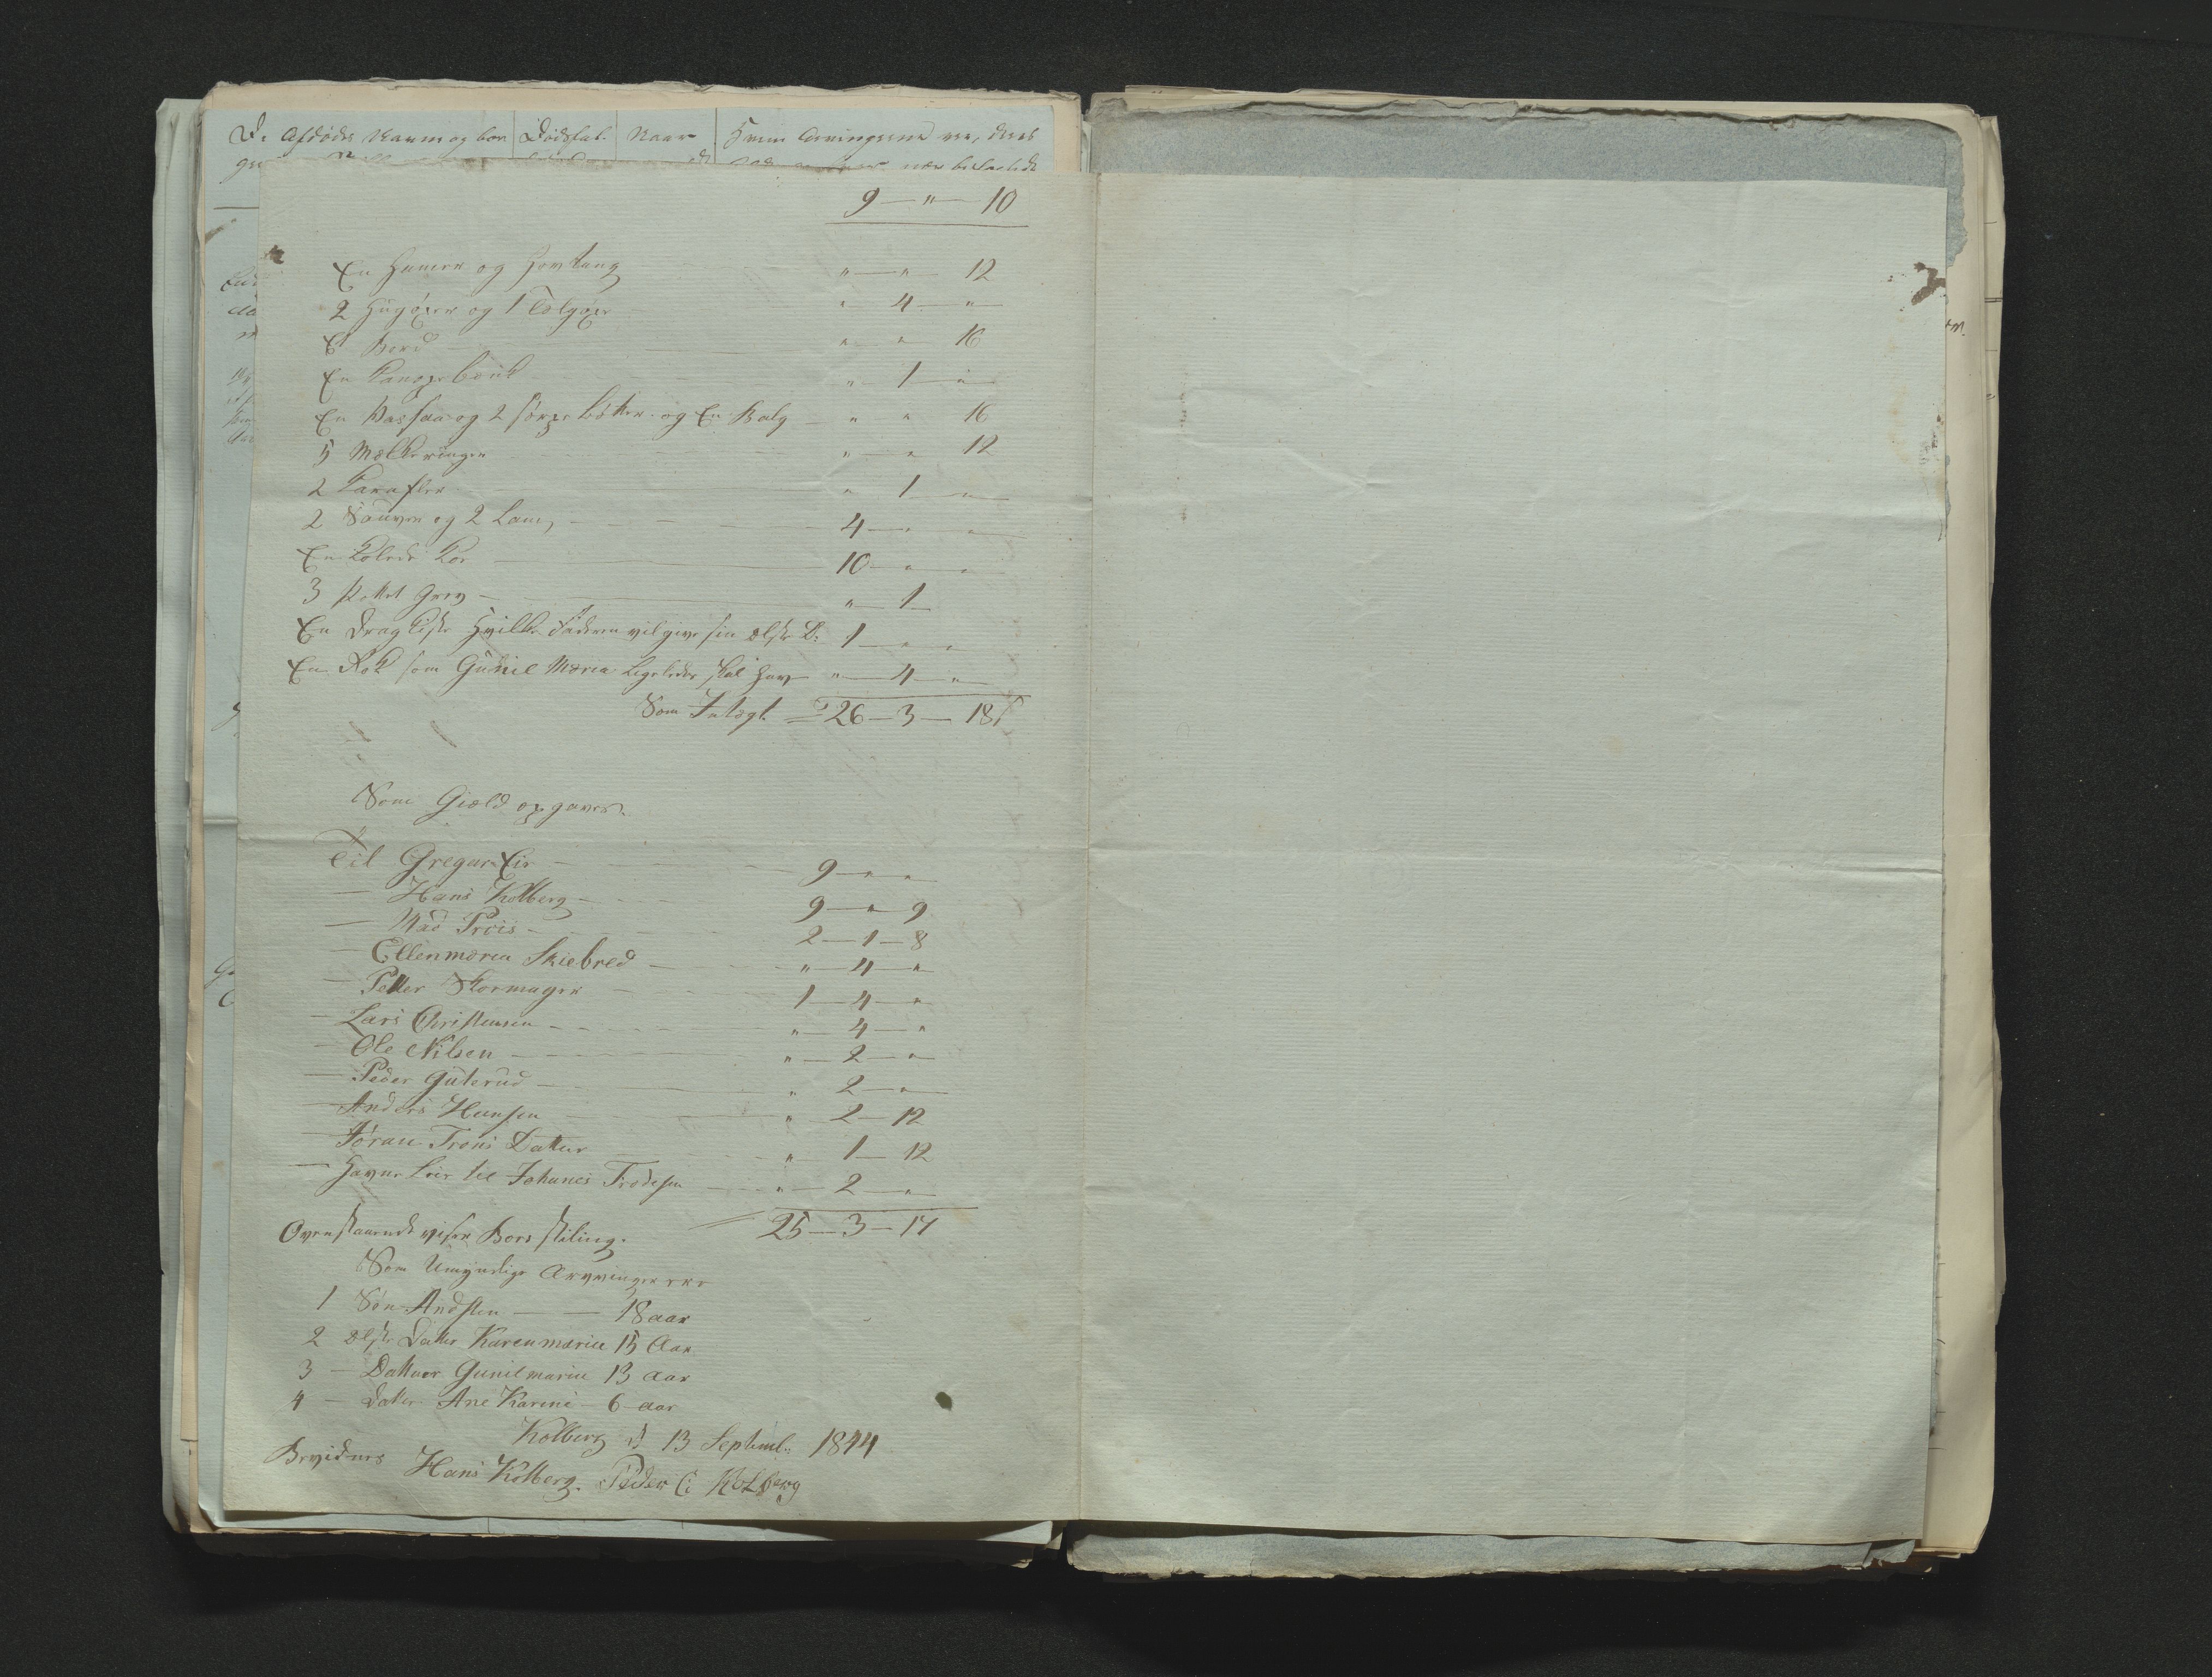 De Afdødes Navn og bo
Dødsfal
Naar
Hvem Arvingerne ere, deres
9 — " — 10
En Hamer og Hovtang " — " — 12
2 Hugøxer og 1 Tølgøxe " 4 — "
Et Bord " " 16
En Kanapebænk " 1 — "
En Vasfaa og 2 sørpe bøtter og En Balg — " " 16
5 Mælkeringer " — " 12
2 Karafler " 1 — "
2 Souver og 2 Lam, 4 — " "
En Kolede Koe 10 " "
3 Grev — " — 1 —
En Dragkiste Hvilke Faderen vil give sin ælste D: 1 " "
En Rok som Gunil Maria Ligeledes skal have " — 4 — "
Som Indtægt = 26 — 3 — 18
Som Giæld opgaves
Til Gregar Eie — 9 — " "
— Hans Kolberg — 9 — " 9
— Mad Preis — 2 — 1 — 8
— Ellenmaria Skiebred — " — 4 — "
— Petter Skormager 1 — 4 — "
— Lars Christensen — " — 4 — "
— Ole Nilsen — " — 2 — "
— Peder Guterud — " 2 — "
— Anders Hansen — " 2 — 12
— Jøran Trons Datter " 1 — 12
— Havne Leie til Johanes Trodesen — " — 2 — "
= 25 — 3 — 17
Ovenstaaende viser Boes stiling.
Som Umyndige Arvinger ere
1 Søn Andsten — — 18 aar
2 ælste Datter Karenmarie 15 Aar
3 — Datter Gunilmarie 13 aar
4 — Datter Ane Karine — 6 aar
Kolberg d 13 Septemb: 1844
Bevidnes Hans Kolberg. Peder C: Kolberg